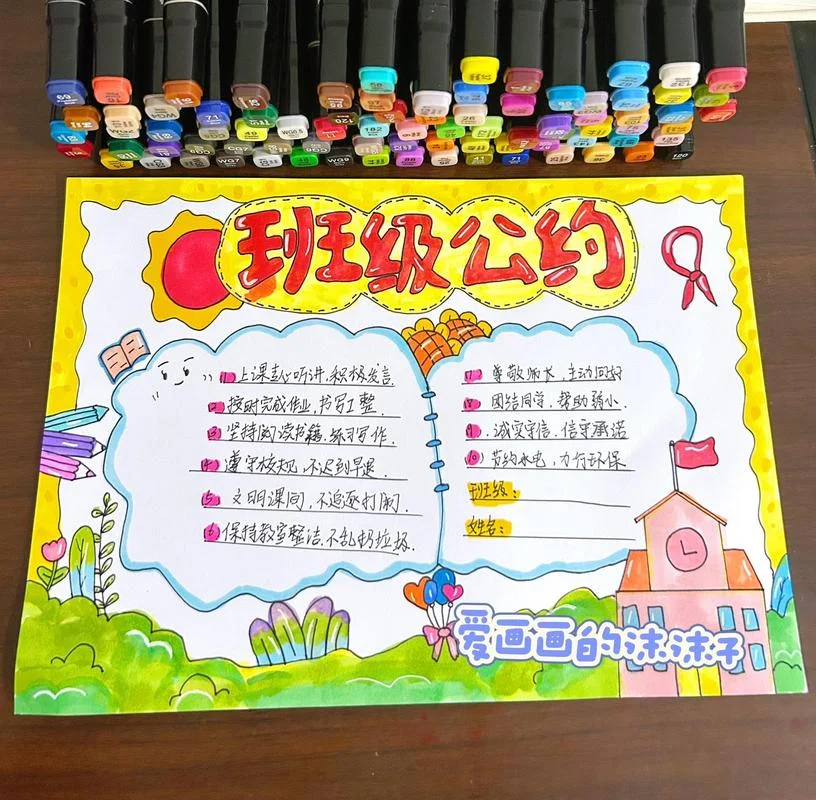 班级公约
1 上课专心听讲,积极发言
2 按时完成作业,书写工整.
3 坚持阅读书籍,练习写作.
4 遵守校规,不迟到早退.
5 文明课间,不追逐打闹.
6 保持教室整洁,不乱扔垃圾.
7 尊敬师长,主动问好
8 团结同学,帮助弱小.
9 .诚实守信.信守承诺
10 节约水电,力行环保
班级:
姓名:
爱画画的沫沫子